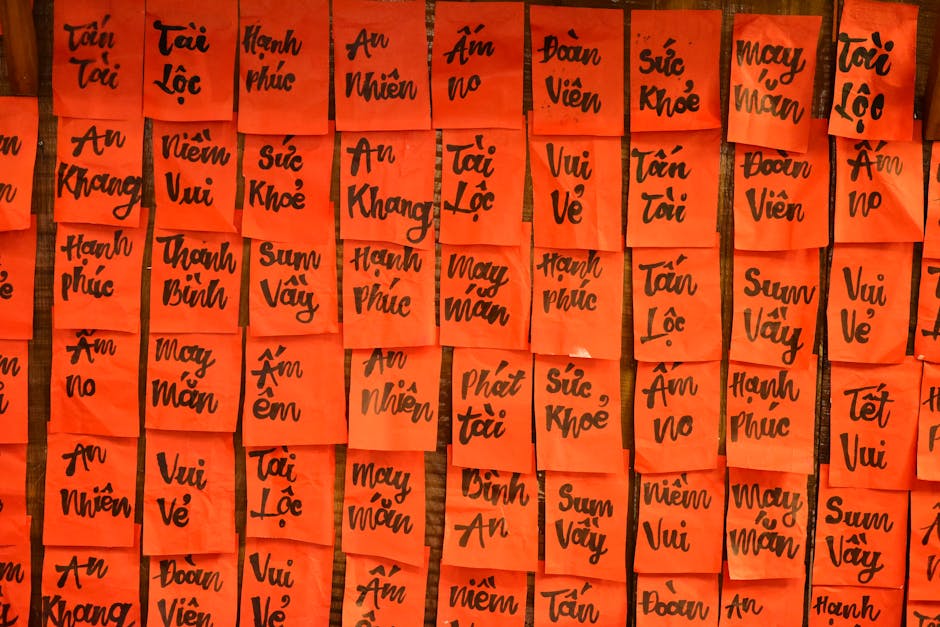 Tấn
Tài
Tài
Lộc
Hạnh
phúc
An
Nhiên
Ấm
no
Đoàn
Viên
Sức
Khoẻ
May
Mắn
Tài
Lộc
An
Khang
Niềm
Vui
Sức
Khoẻ
An
Khang
Tài
Lộc
Vui
Vẻ
Tấn
Tài
Đoàn
Viên
Ấm
no
Hạnh
phúc
Thanh
Bình
Sum
Vầy
Hạnh
phúc
May
mắn
Hạnh
phúc
Tấn
Lộc
Sum
Vầy
Vui
Vẻ
Ấm
no
May
mắn
Ấm
êm
An
nhiên
Phát
tài
Sức
Khoẻ
Ấm
no
Hạnh
Phúc
Tết
Vui
An
Nhiên
Vui
Vẻ
Tài
Lộc
May
mắn
Bình
An
Sum
Vầy
niềm
Vui
May
mắn
Sum
Vầy
An
Khang
Đoàn
Viên
Vui
Vẻ
Ấm
niềm
Tấn
Đoàn
An
Hạnh